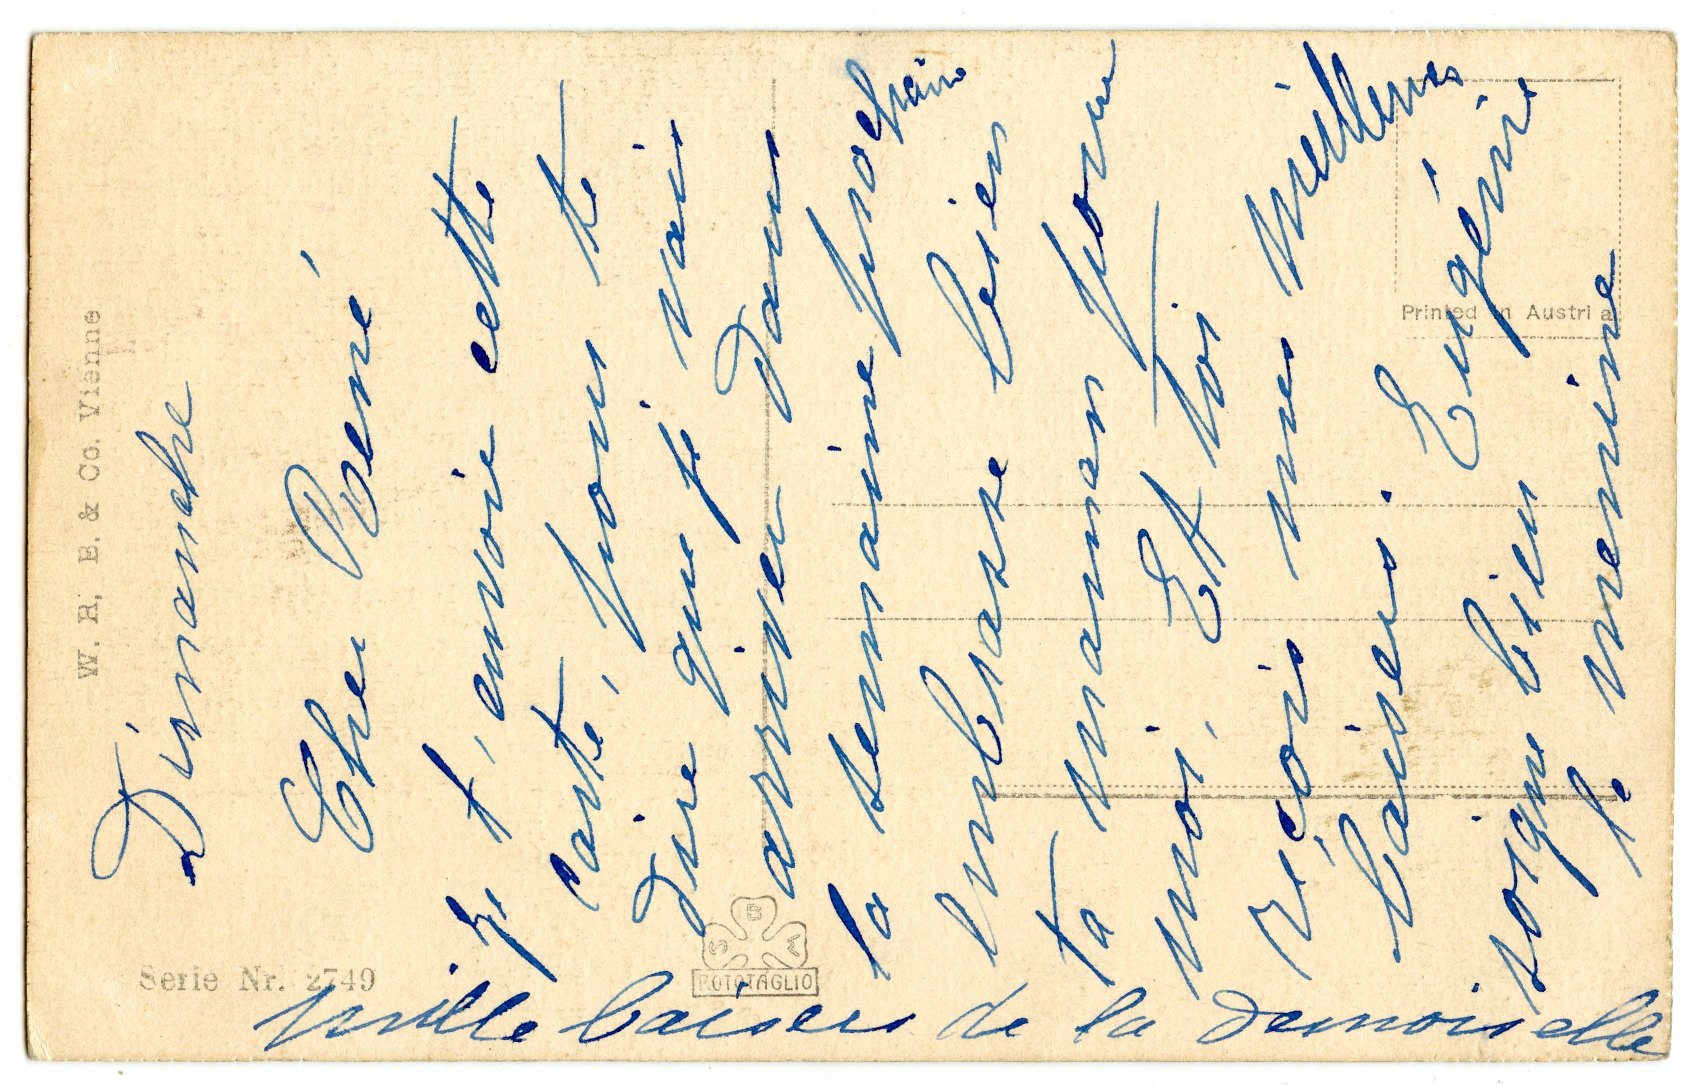 Dimanche
Cher René
Je t'envoie cette
carte, pour te
dire que je vais
arriver dans
la semaine prochaine
embrasse bien
ta maman pour
moi. Et toi
reçois mes meilleures
baisers Eugénie
soigne bien
le menine
Mille baisers de la demoiselle
W. R. B. & Co. Vienne
Serie Nr. 2749
S B M
ROTOTAGLIO
Printed in Austria